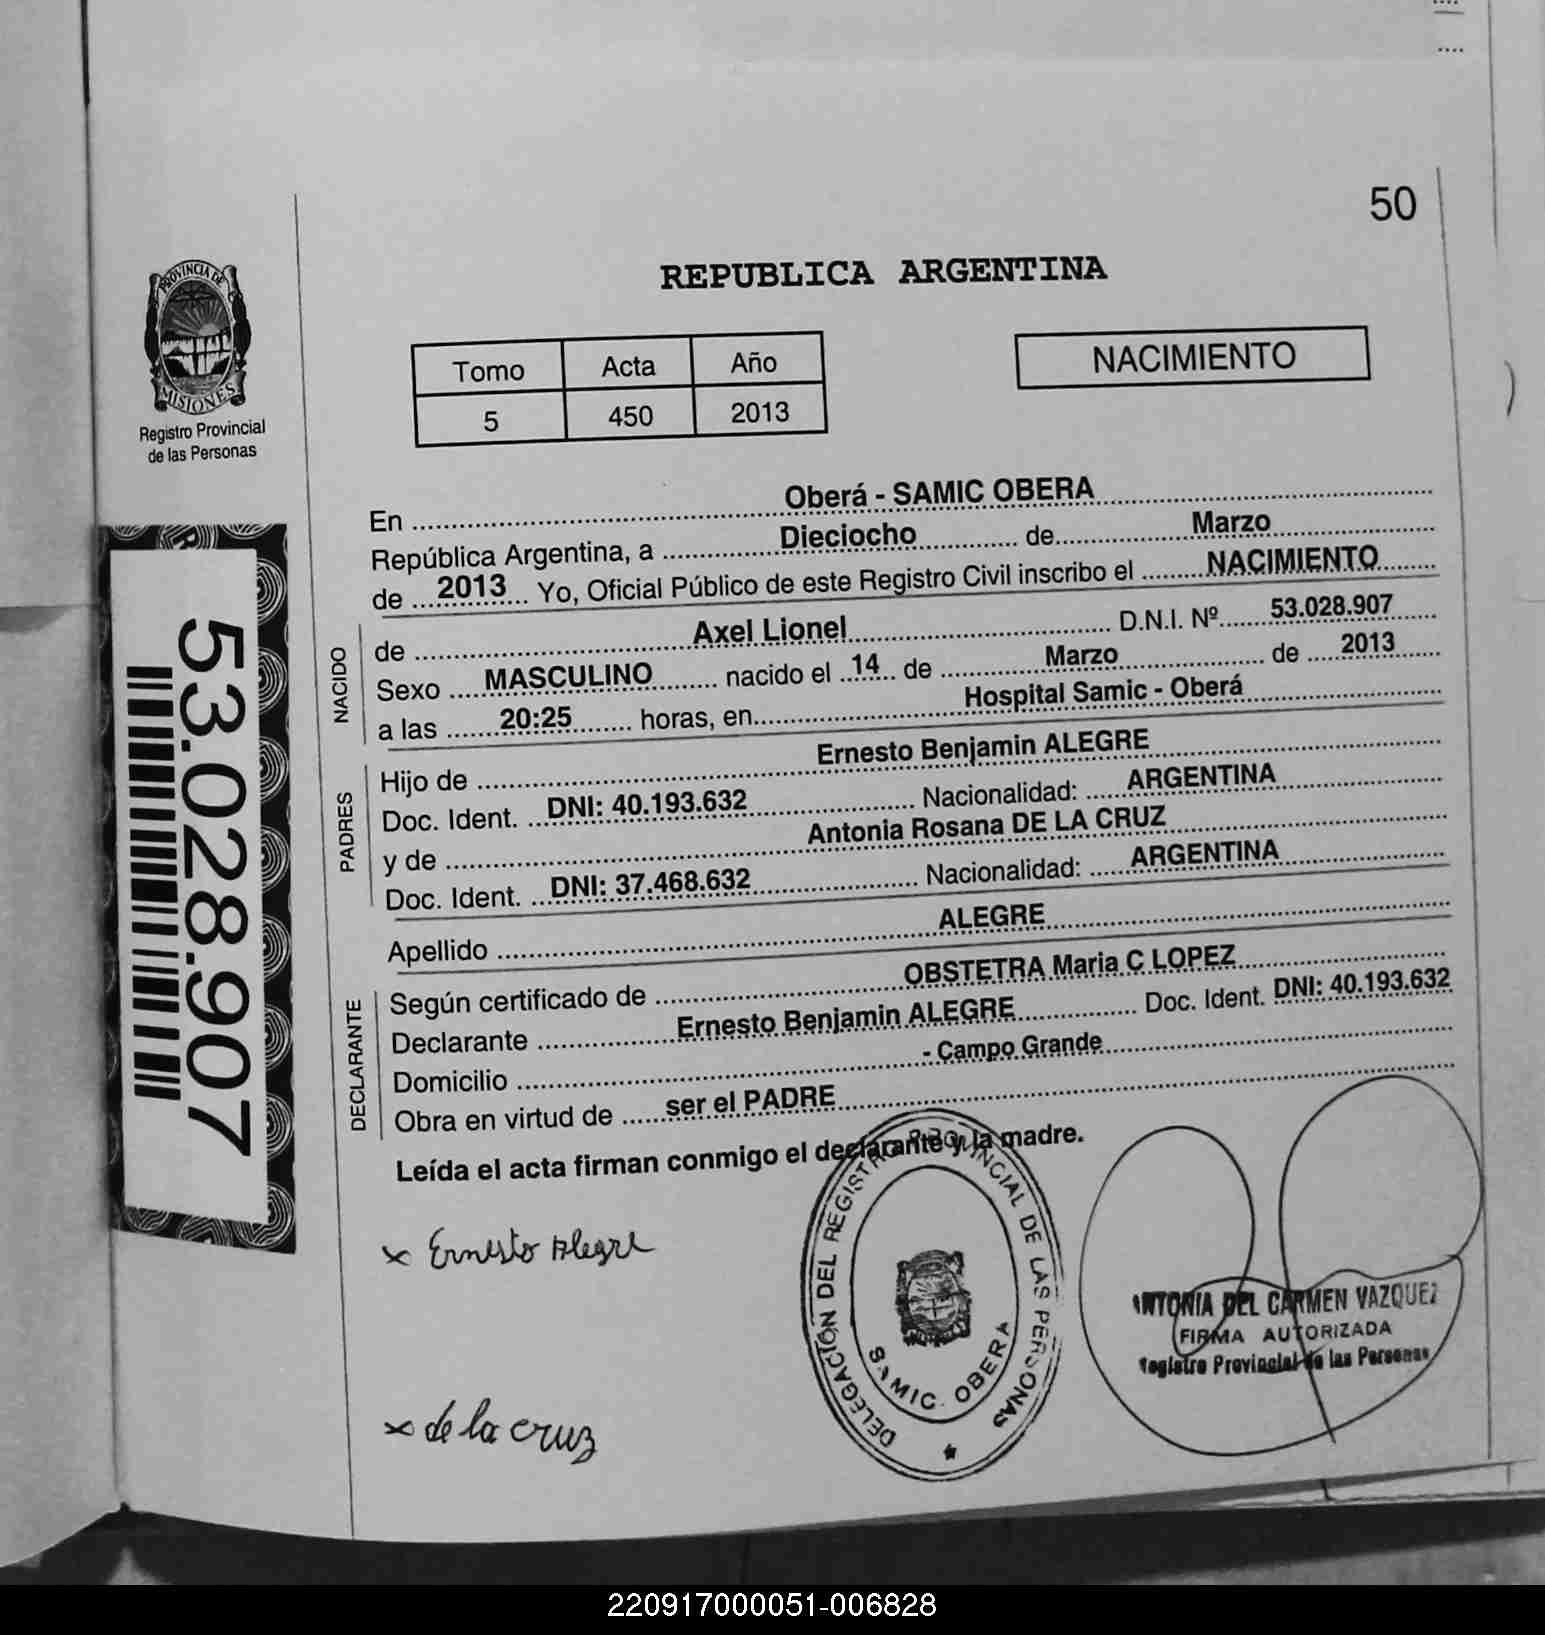 50
PROVINCIA DE
MISIONES
Registro Provincial
de las Personas
REPUBLICA ARGENTINA
Tomo Acta Año
5 450 2013
NACIMIENTO
53.028.907
En Oberá - SAMIC OBERA
República Argentina, a Dieciocho de Marzo
de 2013 Yo, Oficial Público de este Registro Civil inscribo el NACIMIENTO
NACIDO
de Axel Lionel D.N.I. Nº 53.028.907
Sexo MASCULINO nacido el 14 de Marzo de 2013
a las 20:25 horas, en Hospital Samic - Oberá
PADRES
Hijo de Ernesto Benjamin ALEGRE
Doc. Ident. DNI: 40.193.632 Nacionalidad: ARGENTINA
y de Antonia Rosana DE LA CRUZ
Doc. Ident. DNI: 37.468.632 Nacionalidad: ARGENTINA
Apellido ALEGRE
DECLARANTE
Según certificado de OBSTETRA Maria C LOPEZ
Declarante Ernesto Benjamin ALEGRE Doc. Ident. DNI: 40.193.632
Domicilio - Campo Grande
Obra en virtud de ser el PADRE
Leída el acta firman conmigo el declarante y la madre.
x Ernesto Alegre
x de la cruz
DELEGACIÓN DEL REGISTRO PROVINCIAL DE LAS PERSONAS
SAMIC. OBERA
ANTONIA DEL CARMEN VAZQUEZ
FIRMA AUTORIZADA
Registro Provincial de las Personas
220917000051-006828